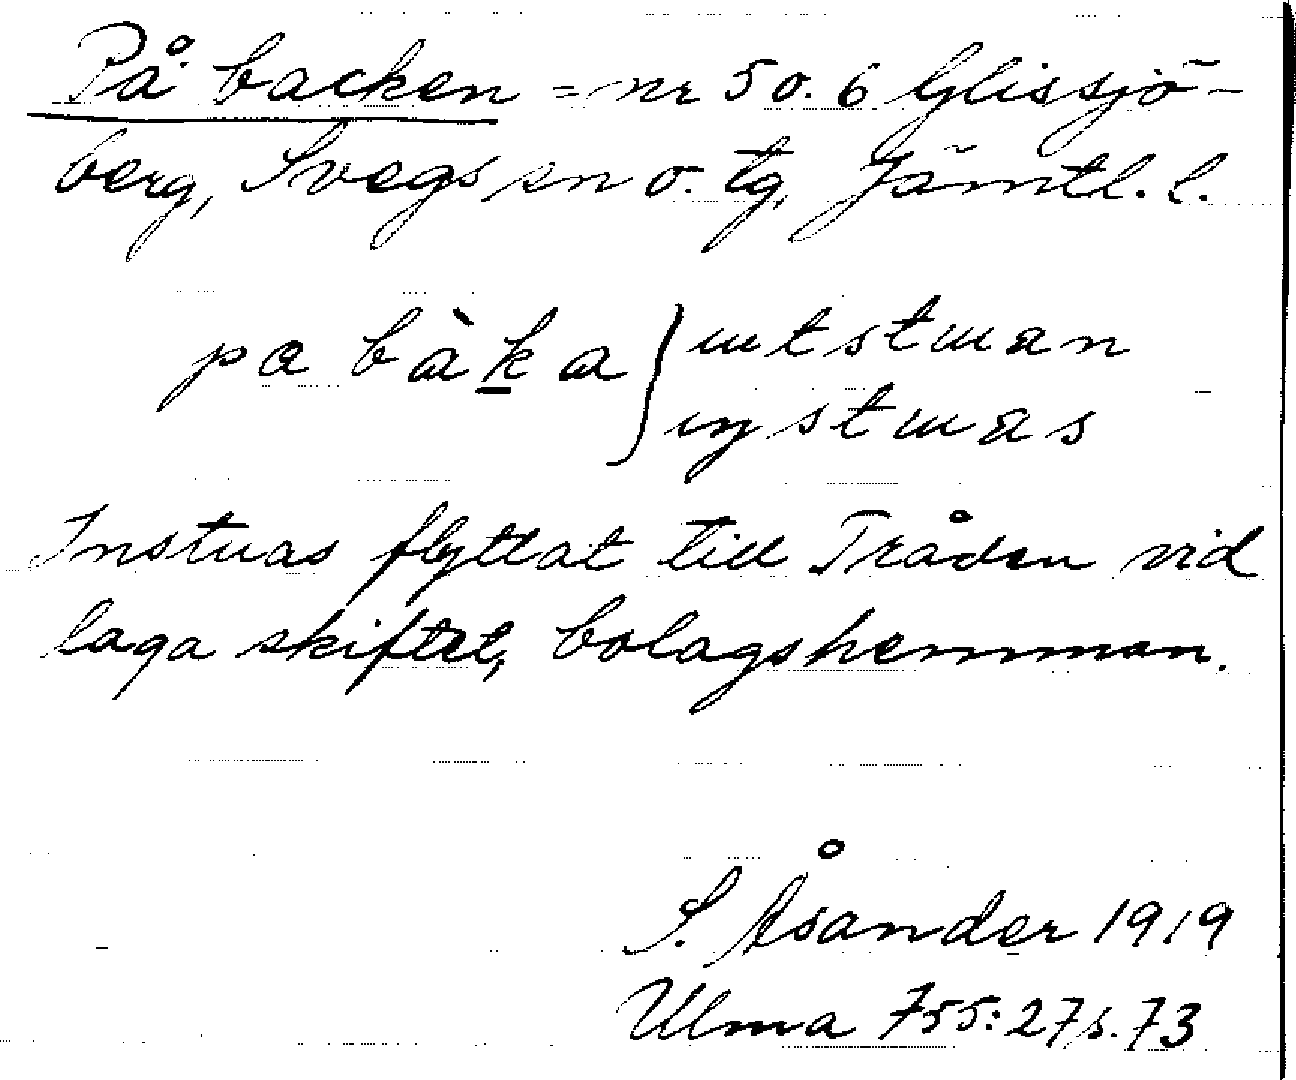 På backen = nr 5 o. 6 Glissjö-
berg, Svegs sn o. tg, Jämtl. l.
pa bàka } utstuan
systuas
Instuas flyttat till Tråden vid
laga skiftet, bolagshemman.
S. Åsander 1919
Ulma 755:27 s. 73